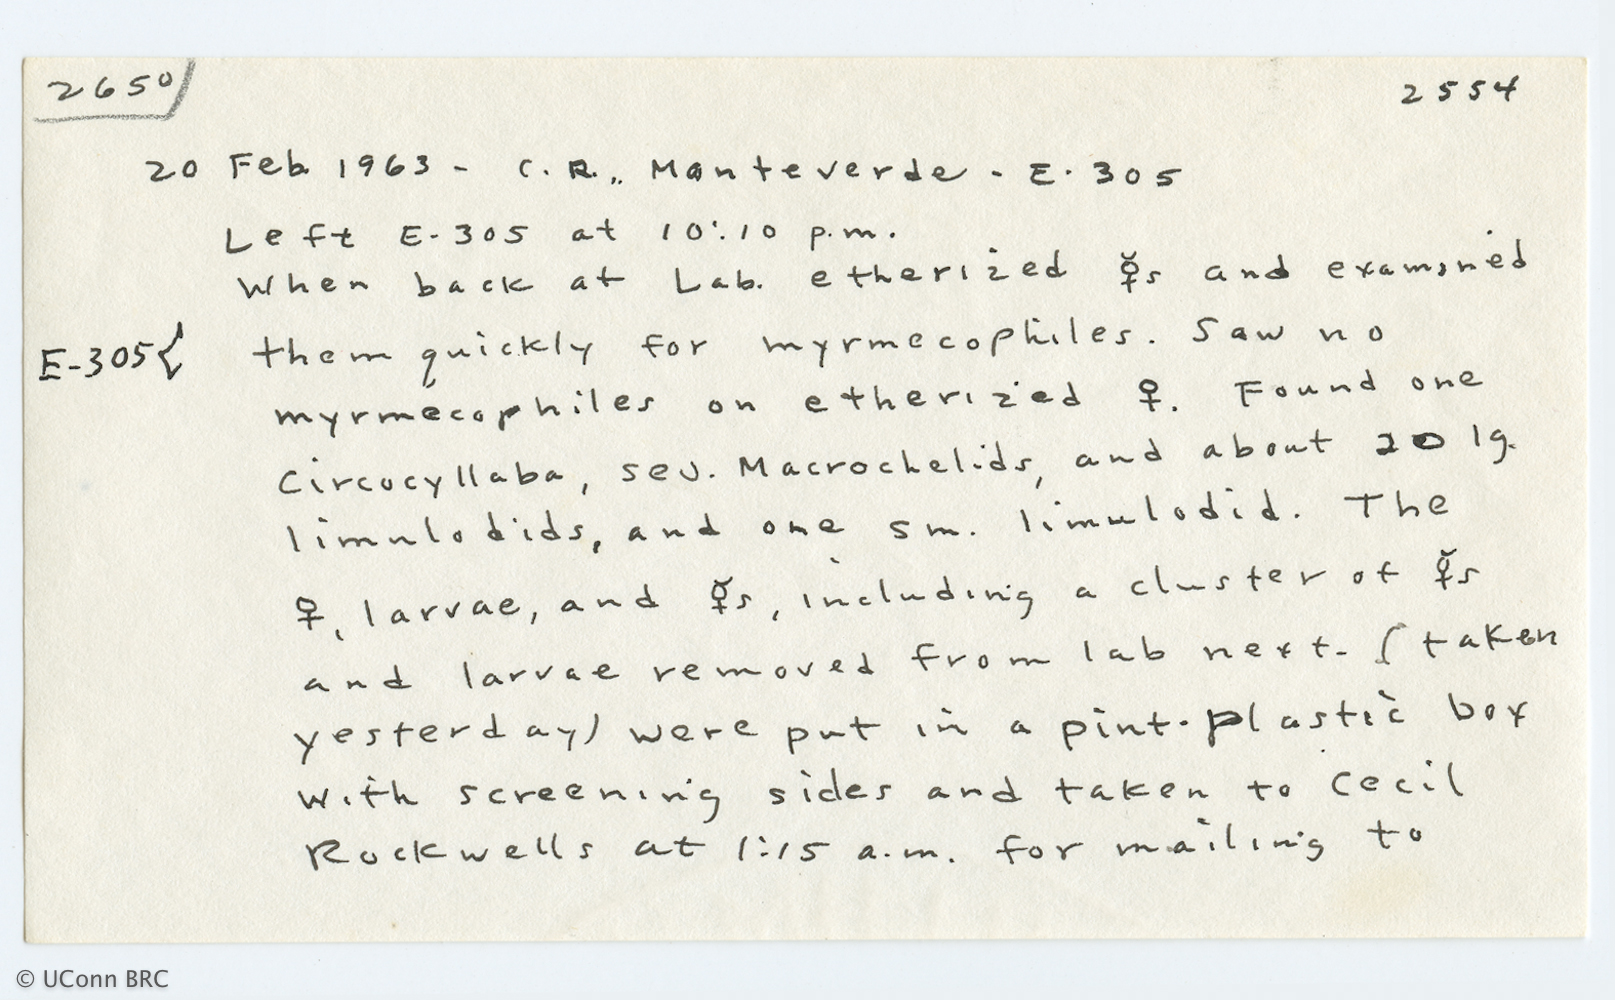 2650
2554
20 Feb 1963 - C.R., Monteverde - E-305
Left E-305 at 10:10 p.m.
When back at Lab. etherized ☿s and examined
E-305{ them quickly for myrmecophiles. Saw no
myrmecophiles on etherized ♀. Found one
Circocyllaba, sev. Macrochelids, and about 20 lg.
limulodids, and one sm. limulodid. The
♀, larvae, and ☿s, including a cluster of ☿s
and larvae removed from lab nest. (taken
yesterday) were put in a pint-plastic box
with screening sides and taken to Cecil
Rockwells at 1:15 a.m. for mailing to
© UConn BRC